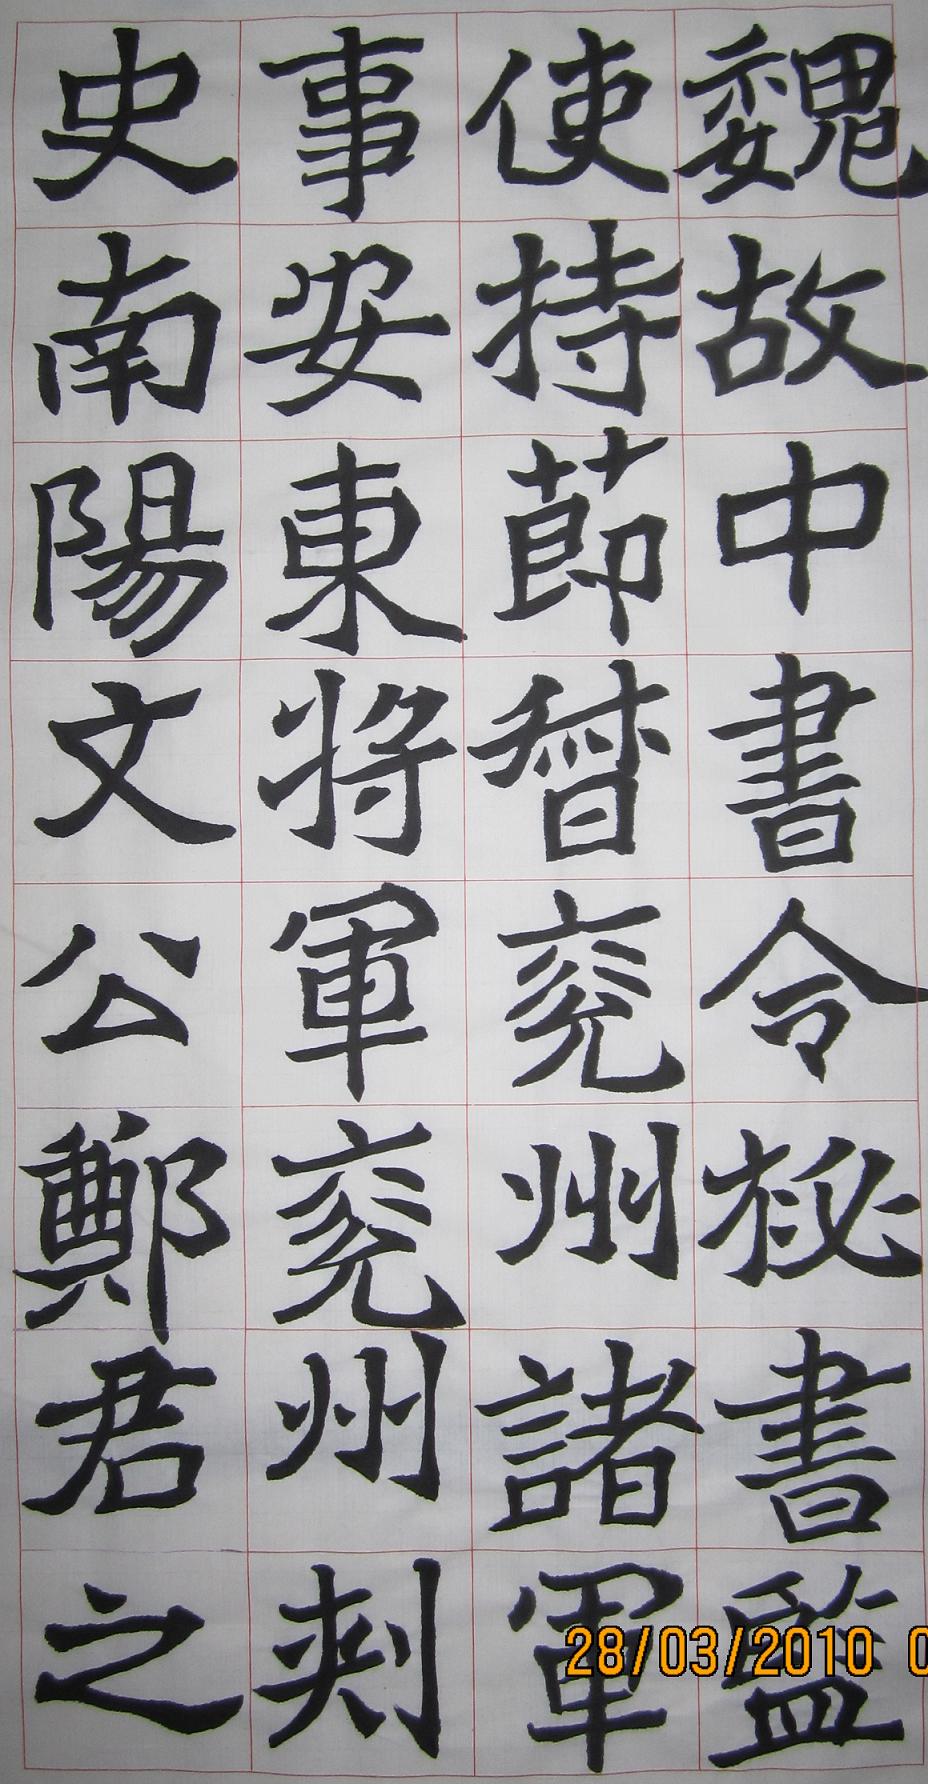 魏故中書令秘書監
使持節督兗州諸軍
事安東將軍兗州刺
史南陽文公鄭君之
28/03/2010 0